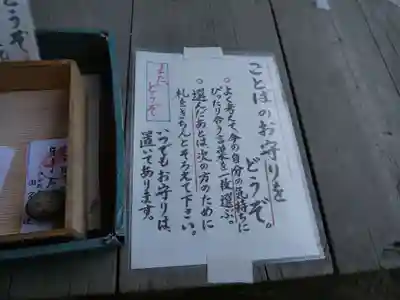 ことばのお守りを
どうぞ。
○よく考えて、今の自分の気持ちに
ぴったり合う言葉を一枚選ぶ。
○選んだあとは次の方のために
札をきちんとそろえて下さい。
またどうぞ
いつでもお守りは、
置いてあります。
どうぞ